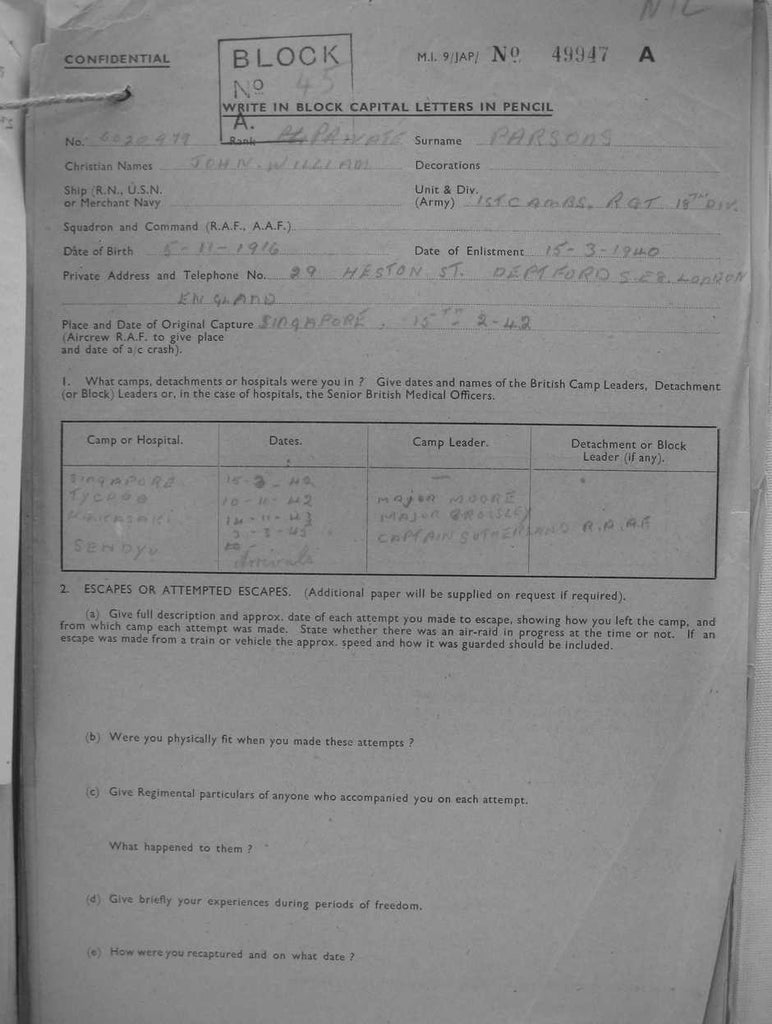 NIL
CONFIDENTIAL
BLOCK
M.I. 9/JAP/ No 49947 A
No 45
WRITE IN BLOCK CAPITAL LETTERS IN PENCIL
A.
No. Rank PRIVATE Surname PARSONS
Christian Names JOHN. WILLIAM Decorations
Ship (R.N., U.S.N. Unit & Div.
or Merchant Navy (Army) 1ST CAMBS. RGT 18TH DIV.
Squadron and Command (R.A.F., A.A.F.)
Date of Birth 5-11-1916 Date of Enlistment 15-3-1940
Private Address and Telephone No. 29 HESTON ST. DEPTFORD S.E8. LONDON
ENGLAND
Place and Date of Original Capture SINGAPORE, 15TH-2-42
(Aircrew R.A.F. to give place
and date of a/c crash).
1. What camps, detachments or hospitals were you in ? Give dates and names of the British Camp Leaders, Detachment
(or Block) Leaders or, in the case of hospitals, the Senior British Medical Officers.
Camp or Hospital. Dates. Camp Leader. Detachment or Block
Leader (if any).
SINGAPORE 15-2-42 —
10-11-42 MAJOR MOORE
14-11-43 MAJOR
3-3-45 CAPTAIN SUTHERLAND R.A.A.F
SENDYU to
Arrivals
2. ESCAPES OR ATTEMPTED ESCAPES. (Additional paper will be supplied on request if required).
(a) Give full description and approx. date of each attempt you made to escape, showing how you left the camp, and
from which camp each attempt was made. State whether there was an air-raid in progress at the time or not. If an
escape was made from a train or vehicle the approx. speed and how it was guarded should be included.
(b) Were you physically fit when you made these attempts ?
(c) Give Regimental particulars of anyone who accompanied you on each attempt.
What happened to them ?
(d) Give briefly your experiences during periods of freedom.
(e) How were you recaptured and on what date ?